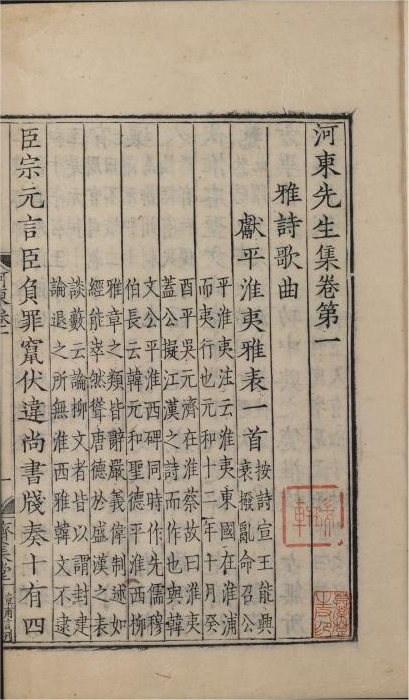 河東先生集卷第一
雅詩歌曲
獻平淮夷雅表一首
按詩宣王能興
衰撥亂命召公
平淮夷注云淮夷東國在淮浦
而夷行也元和十二年十月癸
酉平吳元濟在淮蔡故曰淮夷
蓋公擬江漢之詩而作也與韓
文公平淮西碑同時作先儒穆
伯長云韓元和聖德平淮西柳
雅章之類皆辭嚴義偉制述如
經能崒然聳唐德於盛漢之表
談藪云論柳文者皆以謂封建
論退之所無淮西雅韓文不逮
臣宗元言臣負罪竄伏違尚書牋奏十有四
河東卷一
一